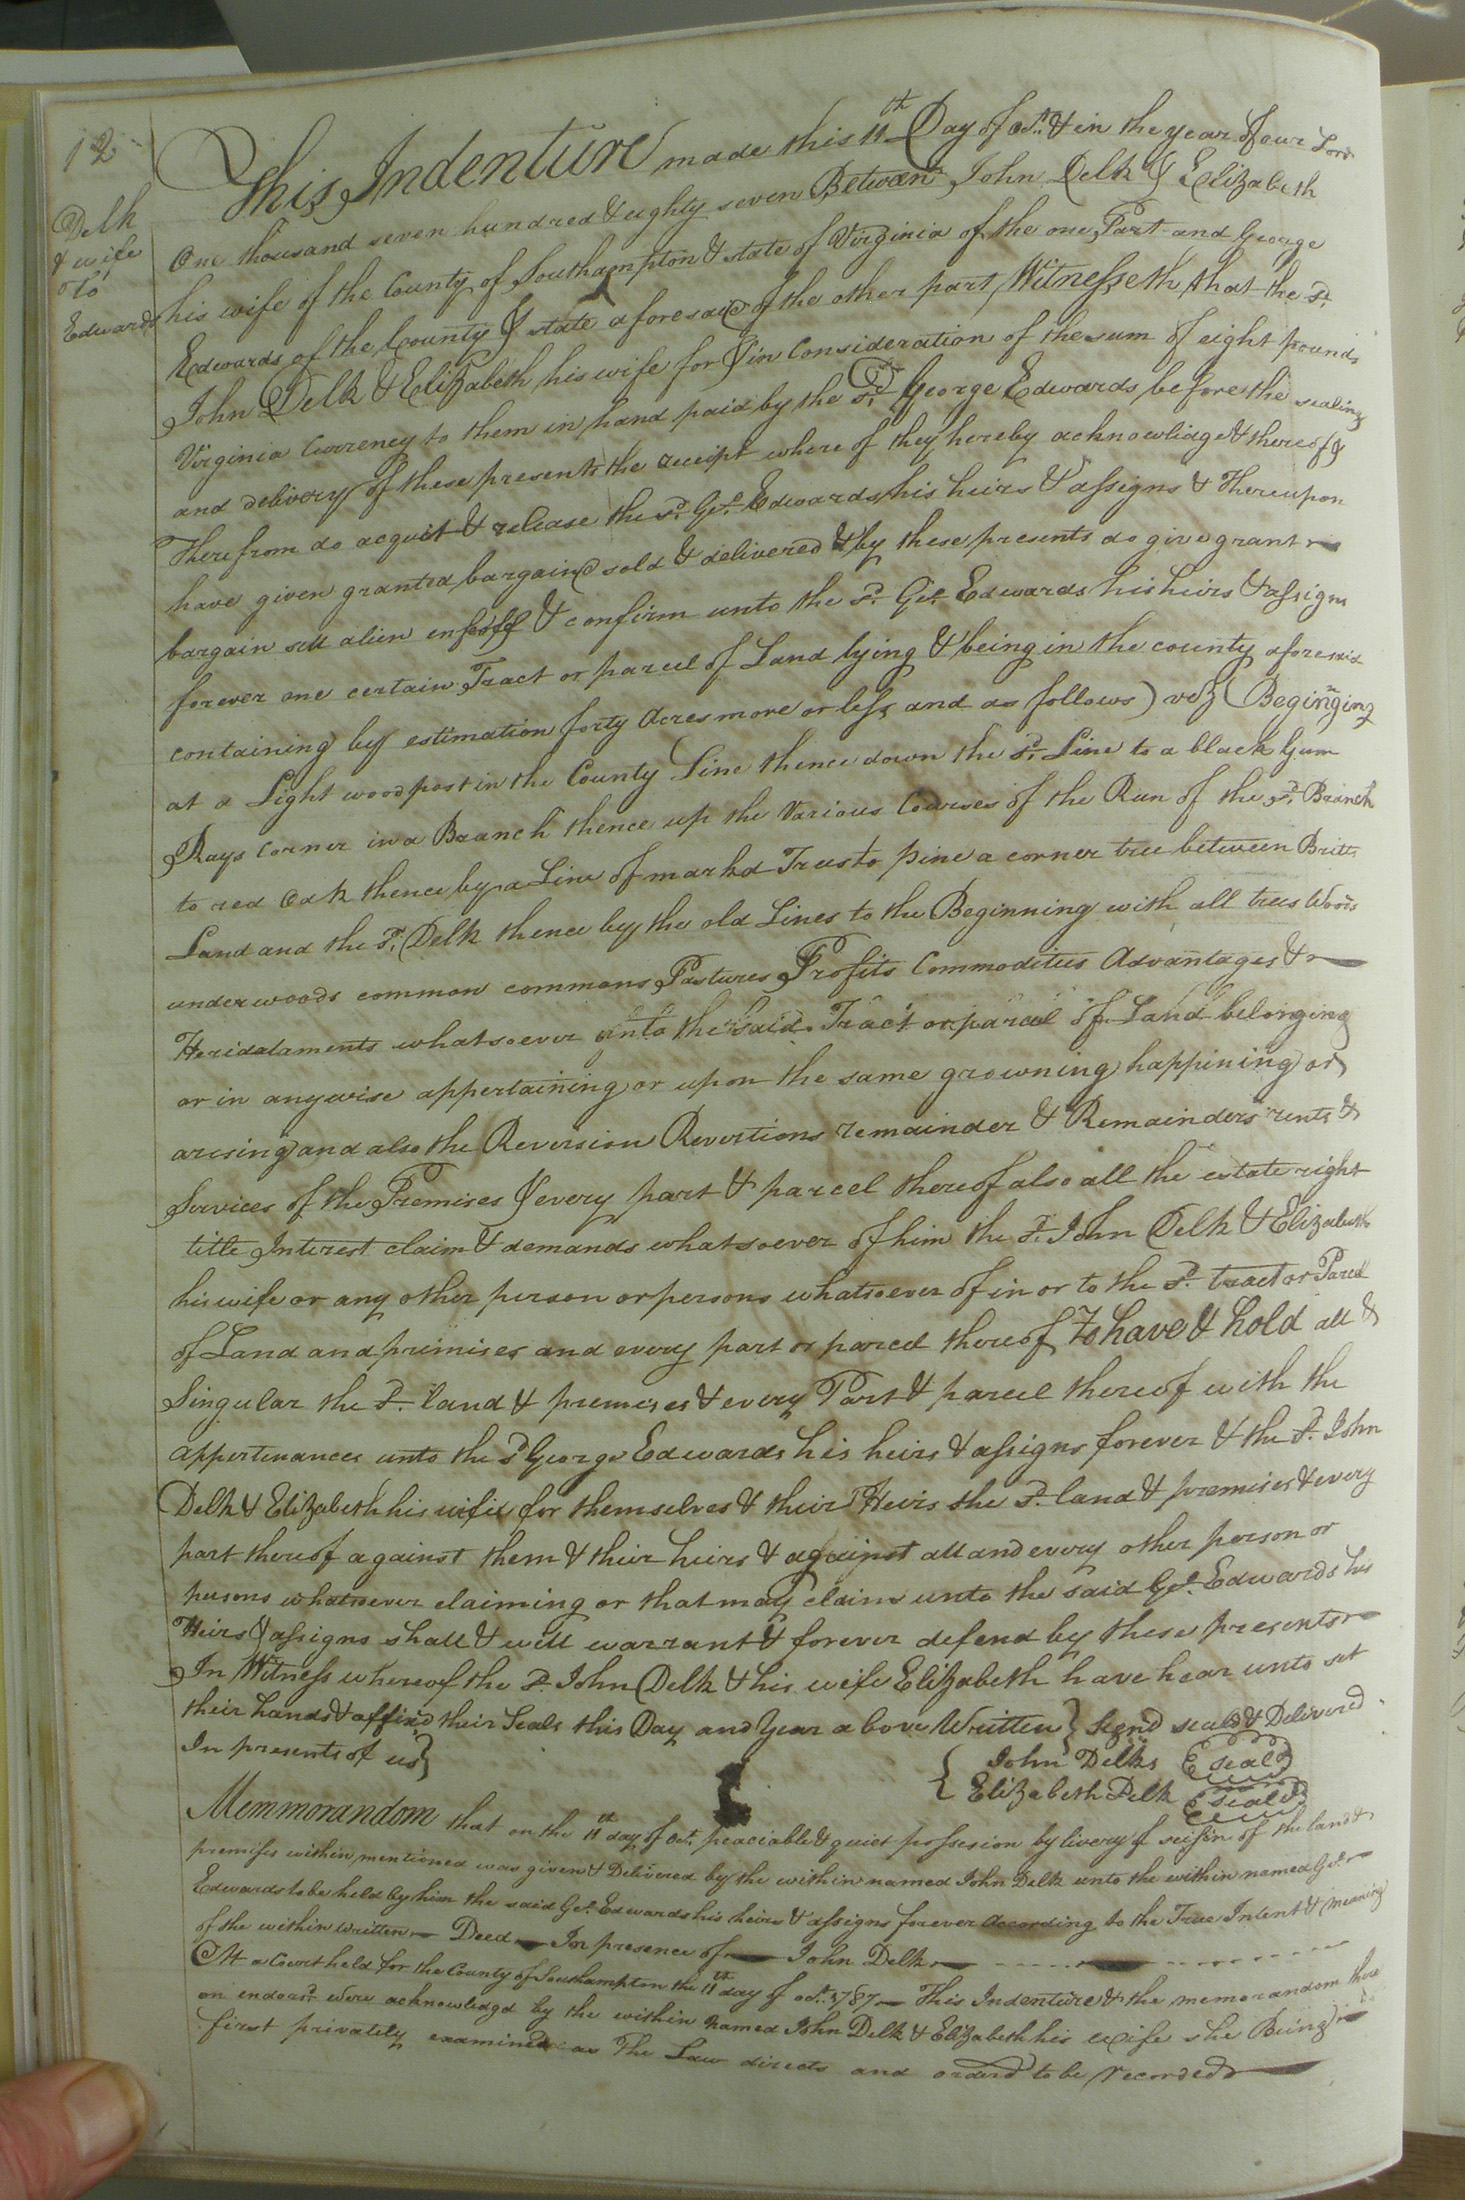 12
Delk
& wife
to
Edwards
This Indenture made this 11th Day of Oct. & in the year of our Lord
One thousand seven hundred & eighty seven Between John Delk & Elizabeth
his wife of the County of Southampton & state of Virginia of the one Part and George
Edwards of the County & state aforesaid of the other part Witnesseth that the sd.
John Delk & Elizabeth his wife for & in Consideration of the sum of eight pounds
Virginia Currency to them in hand paid by the sd. George Edwards before the sealing
and delivery of these presents the receipt where of they hereby acknowlidge & thereof &
Therefrom do acquit & release the sd. Geo. Edwards his heirs & assigns & Thereupon
have given granted bargaind sold & delivered & by these presents do give grant
bargain sell alien enfeoff & confirm unto the sd. Geo. Edwards his heirs & assigns
forever one certain Tract or parcel of Land lying & being in the county aforesaid
containing by estimation forty Acres more or less and as follows) vez (Begining
at a Light wood post in the County Line thence down the sd. Line to a black Gum
Rays Corner in a Branch thence up the Various Courses of the Run of the sd. Branch
to red Oak thence by a Line of markd Trees to pine a corner tree between Britts
Land and the sd. Delk thence by the old Lines to the Beginning with all trees Woods
underwoods common commons Pastures Profits Commodities Advantages &
Heridataments whatsoever unto the said Tract or parcel of Land belonging
or in anywise appertaining or upon the same growning happining or
arising and also the Reversion Revertions remainder & Remainders rents &
Services of the Premises & every part & parcel thereof also all the estate right
title Interest claim & demands whatsoever of him the sd. John Delk & Elizabeth
his wife or any other person or persons whatsoever of in or to the sd. tract or Parcel
of Land and primises and every part or parcel thereof To have & hold all &
Singular the sd. land & premises & every Part & parcel thereof with the
appertenances unto the sd George Edwards his heirs & assigns forever & the sd. John
Delk & Elizabeth his wife for themselves & their Heirs the sd. land & premises & every
part thereof against them & their heirs & against all and every other person or
persons whatsoever claiming or that may claim unto the said Geo. Edwards his
Heirs & assigns shall & will warrant & forever defend by these presents
In Witness whereof the sd. John Delk & his wife Elizabeth have hear unto set
their hands & affixd their Seals this Day and Year above Written } Signd seald & Delivered
In presents of us}
{ John Delks seal
Elizabeth Delk seal
Memmorandom that on the 11th day of Oct. peaciable & quiet possesion by livery of seisin of the land &
premises within mentioned was given & Delivered by the within named John Delk unto the within named Geo.
Edwards to be held by him the said Geo. Edwards his heirs & assigns forever According to the True Intent & meaning
of the within written Deed In presence of John Delk
At a Court held for the County of Southampton the 11th day of Oct. 1787 This Indenture & the memorandom there
on endorsd. were acknowledgd by the within named John Delk & Elizabeth his wife she Being
first privately examined as The Law directs and orderd to be recorded